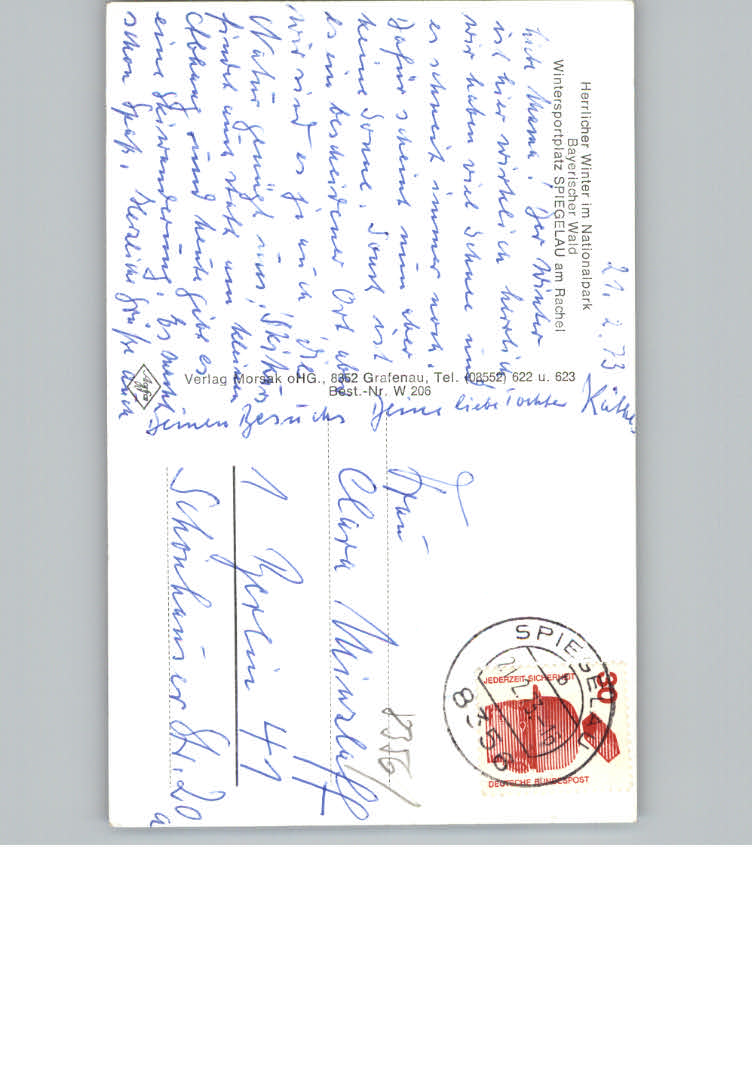 Herrlicher Winter im Nationalpark
Bayerischer Wald
Wintersportplatz SPIEGELAU am Rachel
21.2.73
Liebe Mama! Der Winter
ist hier wirklich herrlich
wir haben viel Schnee und
es schneit immer noch.
Dafür scheint nun aber
keine Sonne. Sonst ist
es ein bescheidener Ort aber
wir sind es ja auch. Die
Natur genügt uns, Skikurs
findet auch statt am kleinen
Abhang und heute gibt es
eine Skiwanderung. Es macht
schon Spaß. Herzliche Grüße auch
Deinen Besuchs Deine liebe Tochter Käthe
Verlag Morsak oHG., 8352 Grafenau, Tel. (08552) 622 u. 623
Best.-Nr. W 206
Agfa
SPIEGELAU
8356
JEDERZEIT SICHERHEIT
30
DEUTSCHE BUNDESPOST
Frau
Clara
8356
1 Berlin 41
Schönhauser Str. 20
a